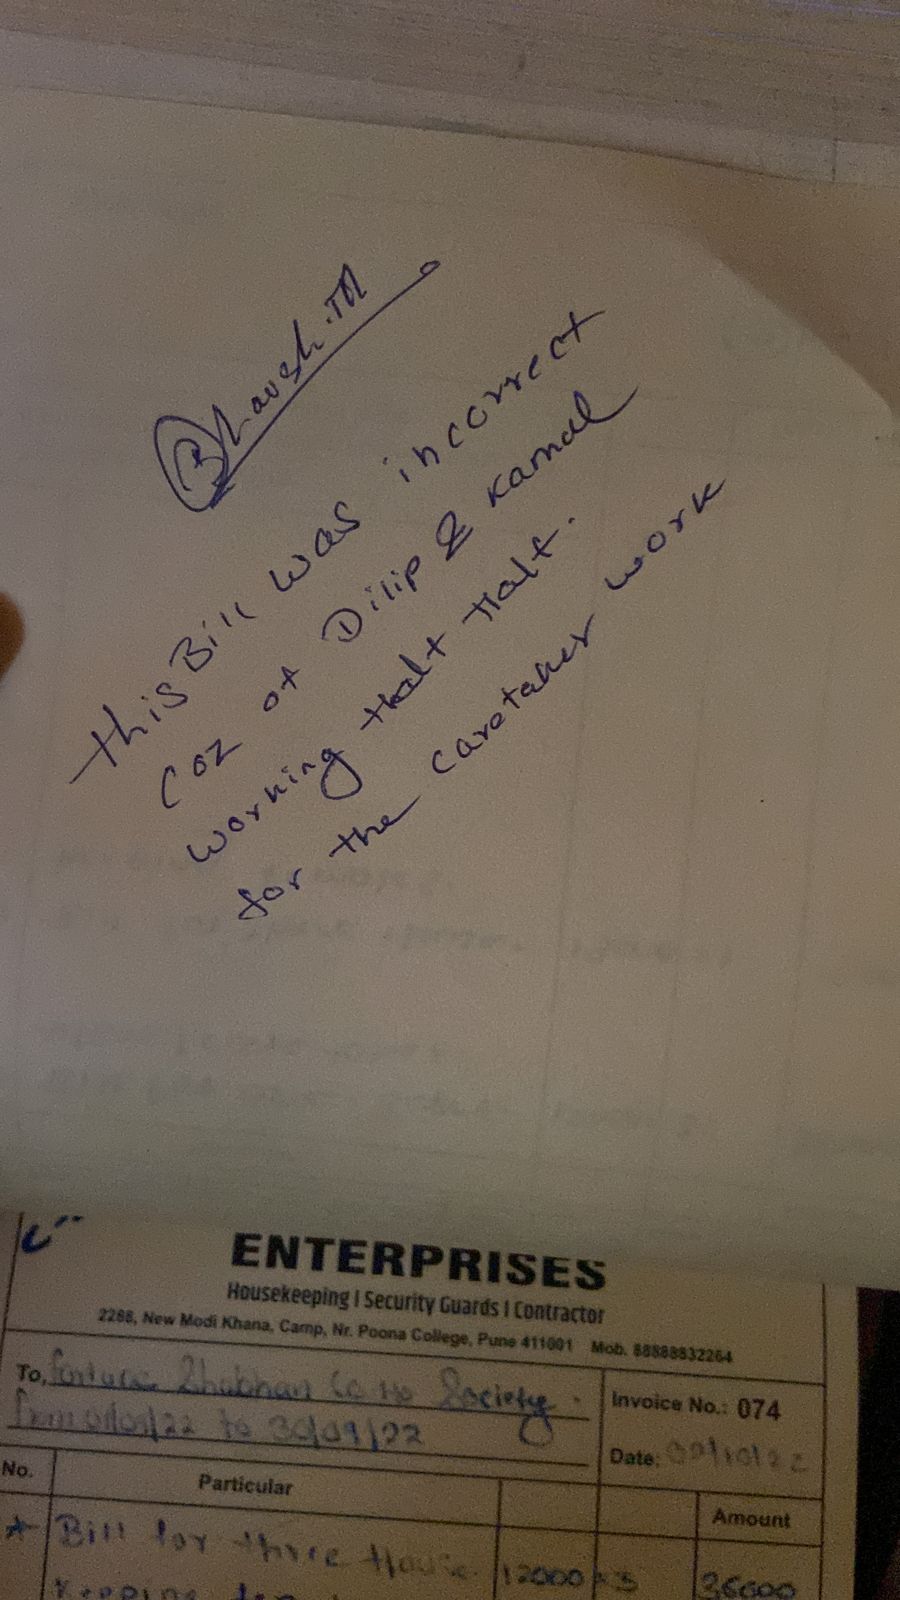 Bhavesh.M
this Bill was incorrect
Coz of Dilip & Kamal
working Half Half.
for the caretaker work
ENTERPRISES
Housekeeping | Security Guards | Contractor
2268, New Modi Khana, Camp, Nr. Poona College, Pune 411001 Mob. 88888832264
To, Fortune Co Ho Society.
from 01/09/22 to 30/09/22
Invoice No.: 074
Date: /10/22
No. Particular Amount
* Bill for three House 12000 x 3 36000
Keeping for